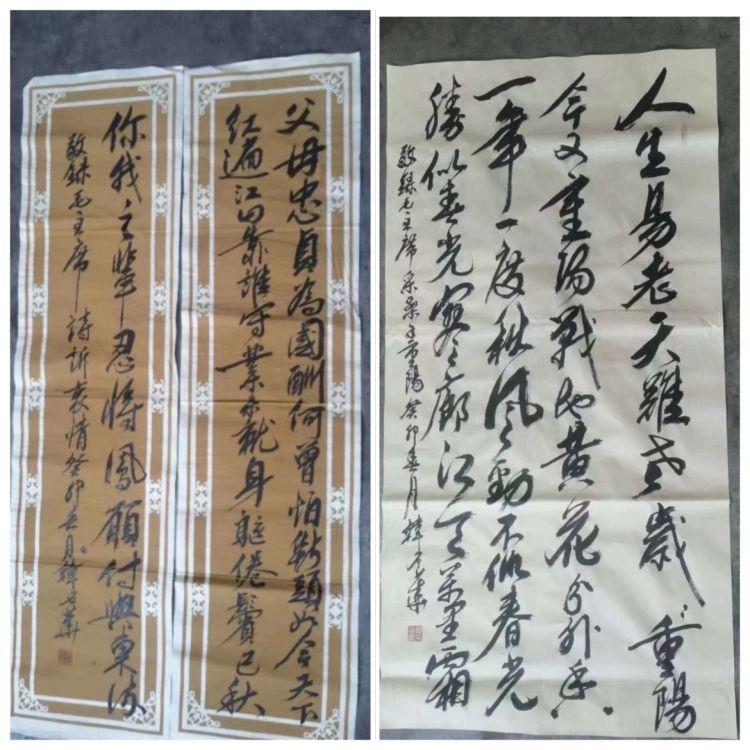 父母忠貞為國酬何曾怕斷頭如今天下
红遍江山靠誰守業未就身軀倦鬢已秋
你我之輩忍將鳳願付與東流
敬錄毛主席詩訴衷情癸卯春月韓華
人生易老天難老歲〻重陽
今又重陽戰地黃花分外香
一年一度秋風勁不似春光
勝似春光寥廓江天萬里霜
敬錄毛主席采桑子重陽癸卯春月韓華